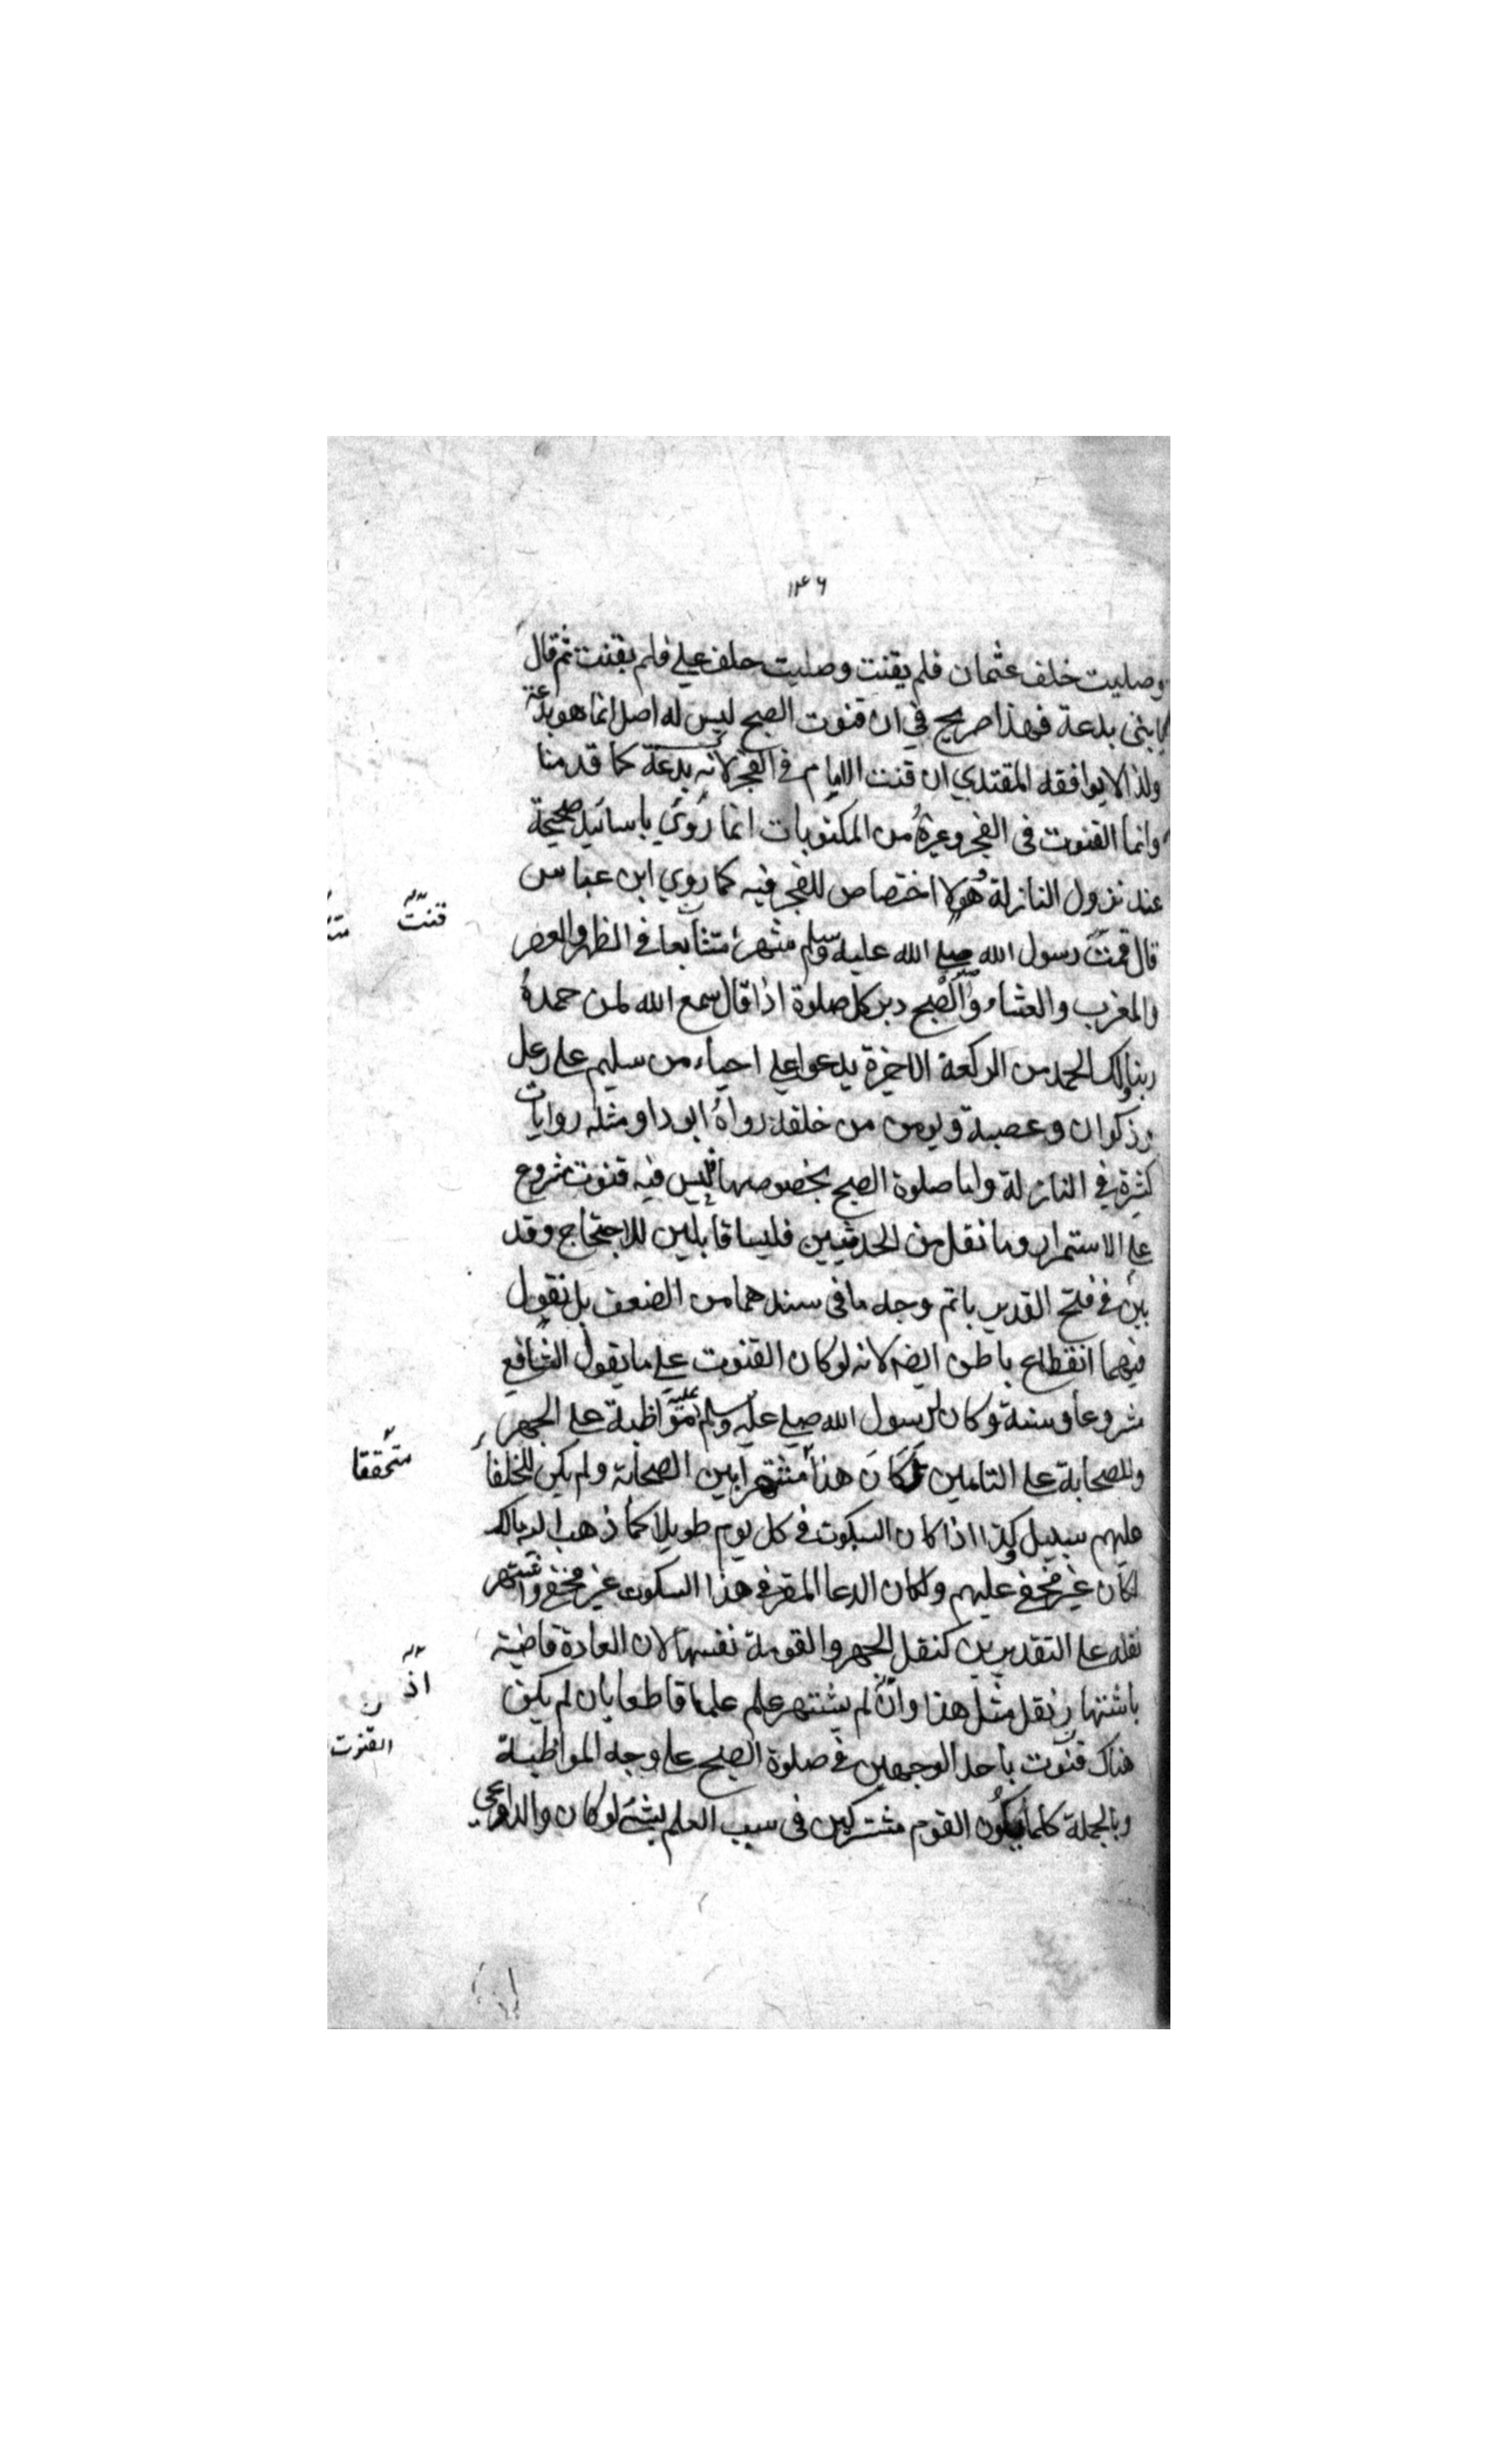 ١٤٦
وصليت خلف عثمان فلم يقنت وصليت خلف علي فلم يقنت ثم قال
يا بني بدعة فهذا صريح في ان قنوت الصبح ليس له اصل انما هو بدعة
ولذا لا يوافقه المقتدي ان قنت الامام في الفجر لانه بدعة كما قدمنا
وانما القنوت فى الفجر وغيره من المكتوبات انما روي باسانيد صحيحة
عند نزول النازلة هو لا اختصاص للفجر فيه كما روي ابن عباس
قال قنت رسول الله صلى الله عليه وسلم شهرا متتابعا في الظهر والعصر
والمغرب والعشاء والصبح دبر كل صلوة اذا قال سمع الله لمن حمده
ربنا ولك الحمد من الركعة الاخيرة يدعوا علي احياء من سليم على رعل
وذكوان وعصية ويومن من خلفه رواه ابو داو مثله روايات
كثيرة في النازلة واما صلوة الصبح بخصوصها فليس فيه قنوت مشروع
على الاستمرار وما نقل من الحديثين فليسا قابلين للاحتجاج وقد
بين في فتح القدير باتم وجه ما فى سندهما من الضعف بل نقول
فيهما انقطاع باطن ايضا لانه لو كان القنوت على ما يقول الشافعي
مشروعا وسنة وكان لرسول الله صلي عليه وسلم مواظبة عليه على الجهر
وللصحابة على التامين لكان هذا مشتهرا بين الصحابة ولم يكن للخلفا
عليهم سبيل وكذا اذا كان السكوت في كل يوم طويلا كما ذهب اليه مالك
لكان غير مخفي عليهم ولكان الدعا المقر في هذا السكوت غير مخفي واشتهر
نقله على التقديرين كنقل الجهر والقومة نفسها لان العادة قاضية
باشتهار نقل مثل هذا وان لم يشتهر علم علما قاطعا بان لم يكن
هناك قنوت باحد الوجهين في صلوة الصبح على وجه المواظبة
وبالجملة كلما يكون القوم مشتركين فى سبب العلم بشئ لو كان والدواعي
قنت
متحققا
اذ
القنوت